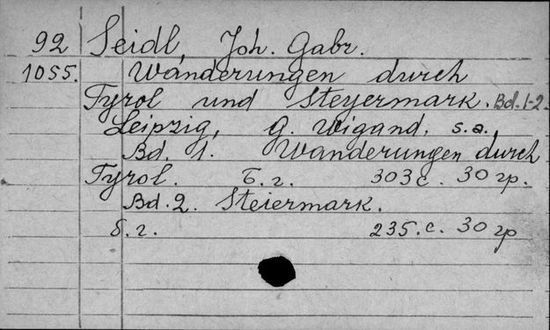 92 Seidl, Joh. Gabr.
1055. Wanderungen durch
Tyrol und Steyermark. Bd. 1-2.
Leipzig, G. Wigand. s.a.
Bd. 1. Wanderungen durch
Tyrol. б.г. 303с. 30 гр.
Bd. 2. Steiermark.
б.г. 235.с. 30 гр